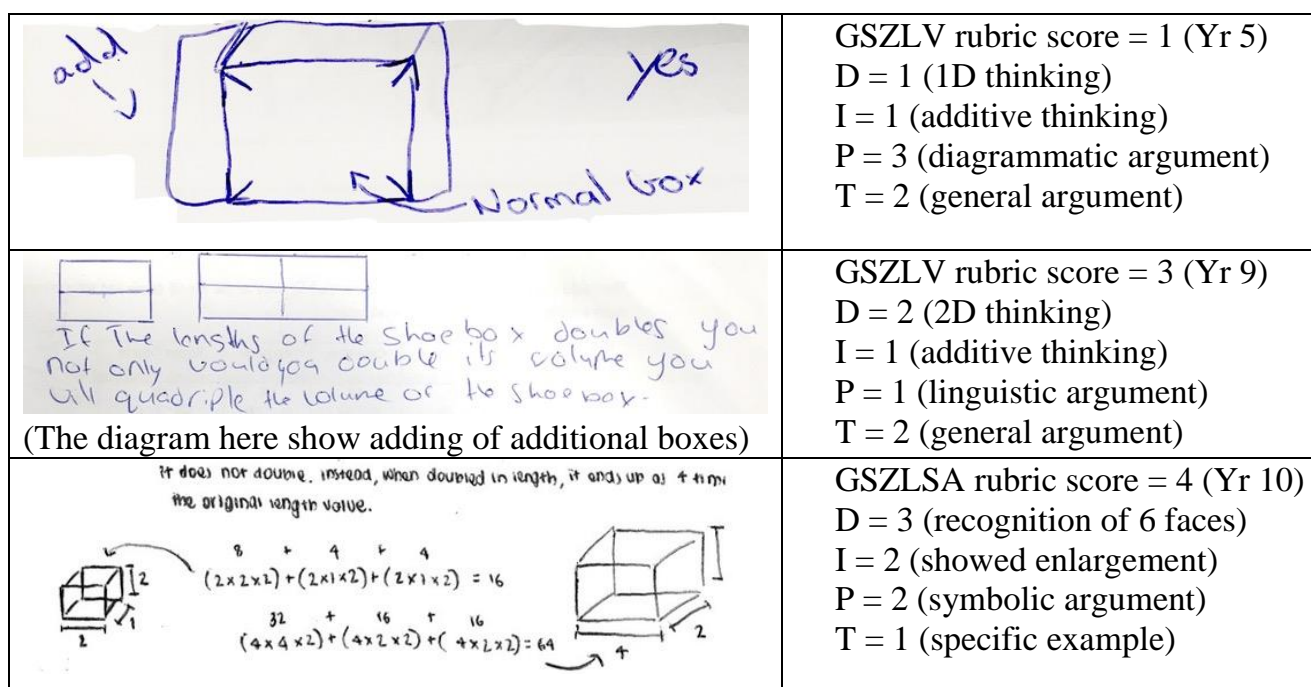 add
yes
Normal box
GSZLV rubric score = 1 (Yr 5)
D = 1 (1D thinking)
I = 1 (additive thinking)
P = 3 (diagrammatic argument)
T = 2 (general argument)
If The lengths of the shoebox doubles you
not only would you double its volume you
will quadriple the volume of the shoebox.
(The diagram here show adding of additional boxes)
GSZLV rubric score = 3 (Yr 9)
D = 2 (2D thinking)
I = 1 (additive thinking)
P = 1 (linguistic argument)
T = 2 (general argument)
it does not double, instead, when doubled in length, it ends up as 4 time
the original length value.
8 + 4 + 4
(2x2x2)+(2x1x2)+(2x1x2) = 16
32 + 16 + 16
(4x4x2)+(4x2x2)+(4x2x2)=64
2
1
2
2
4
GSZLSA rubric score = 4 (Yr 10)
D = 3 (recognition of 6 faces)
I = 2 (showed enlargement)
P = 2 (symbolic argument)
T = 1 (specific example)